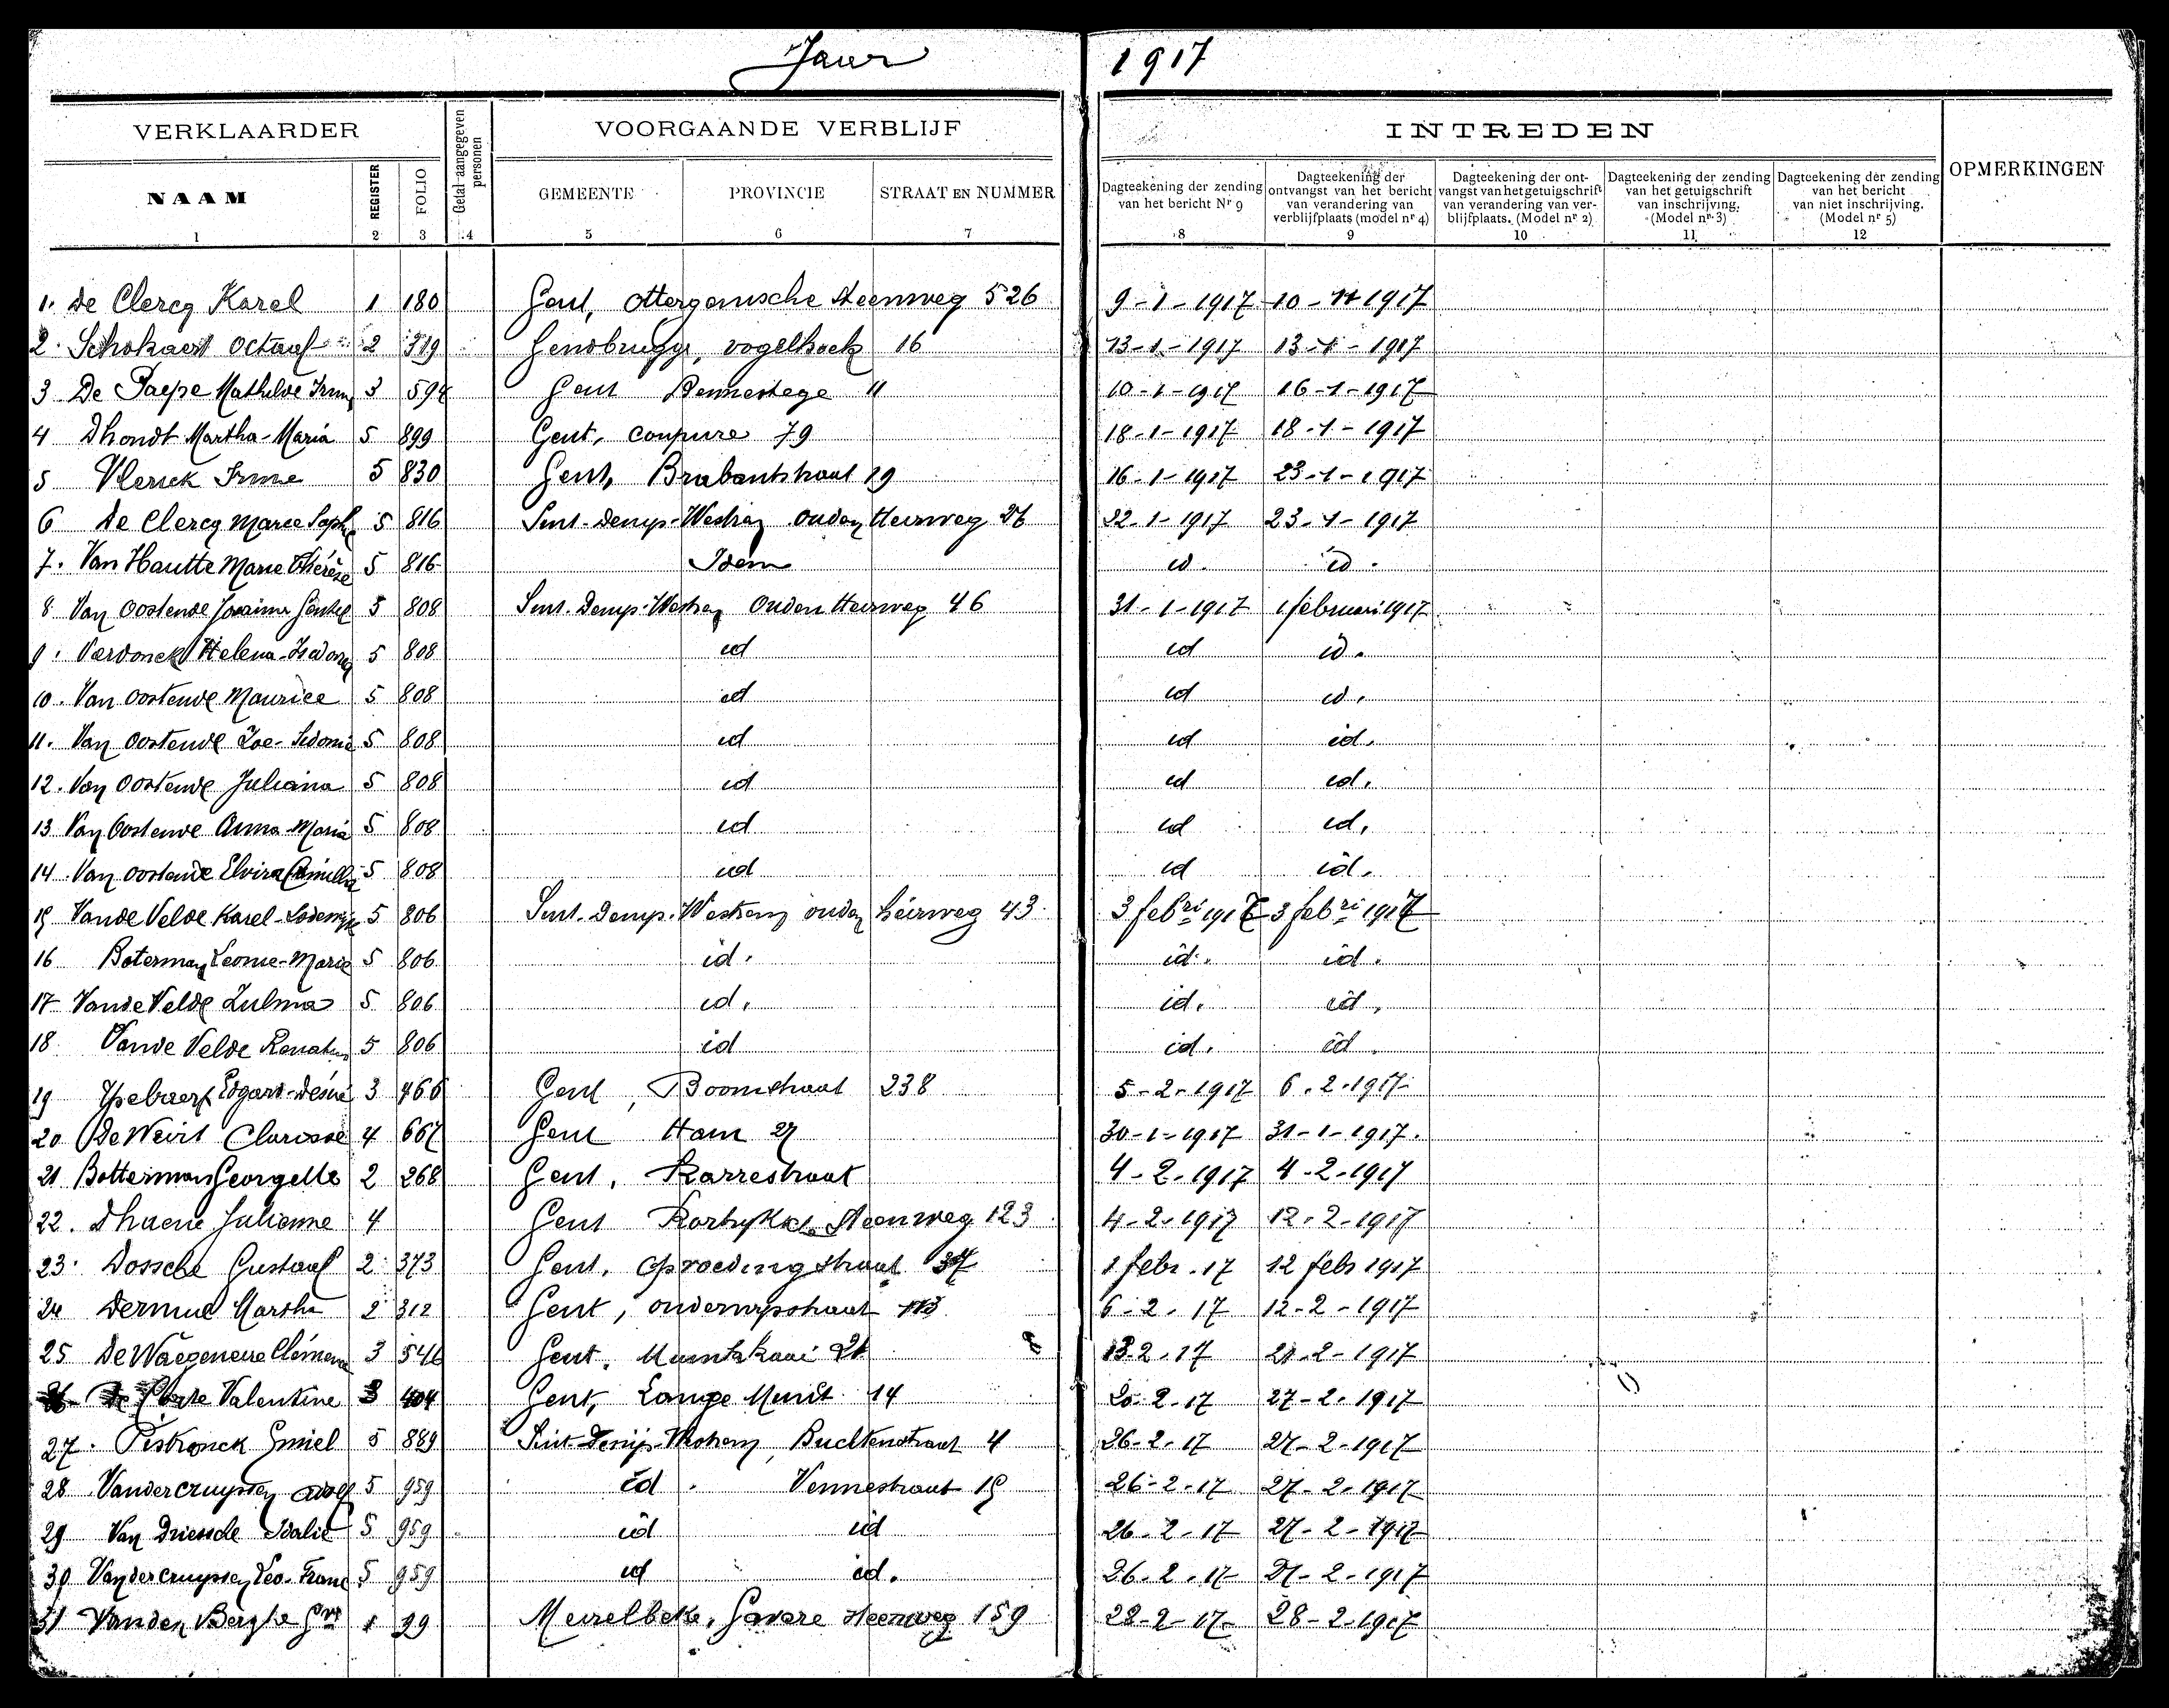 Jaar 1917
VERKLAARDER
Getal aangegeven personen
VOORGAANDE VERBLIJF
INTREDEN
OPMERKINGEN
NAAM
REGISTER
FOLIO
GEMEENTE
PROVINCIE
STRAAT EN NUMMER
Dagteekening der zending van het bericht Nr 9
Dagteekening der ontvangst van het bericht van verandering van verblijfplaats (model nr 4)
Dagteekening der ontvangst van het getuigschrift van verandering van verblijfplaats. (Model nr 2)
Dagteekening der zending van het getuigschrift van inschrijving. (Model nr 3)
Dagteekening der zending van het bericht van niet inschrijving. (Model nr 5)
1 2 3 4 5 6 7 8 9 10 11 12
1. De Clercq Karel 1 180 Gent, ottergemsche steenweg 526 9-1-1917 10-1917
2. Schokaert Octaaf 2 319 Gendbrugge, vogelhoek 16 13-1-1917 13-1-1917
3 De Paepe Mathilde 3 594 Gent Bennestege 11 10-1-1917 16-1-1917
4 Dhondt Martha-Maria 5 899 Gent, coupure 79 18-1-1917 18-1-1917
5 Vlerick Irma 5 830 Gent, Brabantstraat 19 16-1-1917 23-1-1917
6 De Clercq Marie Soph 5 816 Sint-Denijs-Westrem Ouden Heirweg 26 22-1-1917 23-1-1917
7. Van Hautte Marie Thérèse 5 816 Idem id. id.
8 Van Oostende 5 808 Sint-Denijs-Westrem Ouden Heirweg 46 31-1-1917 1 februari 1917
9. Verdonck Helena 5 808 id id id.
10. Van Oostende Maurice 5 808 id id id.
11. Van Oostende Zoe-Sidonie 5 808 id id id.
12. Van Oostende Juliana 5 808 id id id.
13 Van Oostende Anna Maria 5 808 id id id.
14. Van Oostende Elvira Camilla 5 808 id id id.
15 Vande Velde Karel-Lodewijk 5 806 Sint-Denijs-Westrem ouden heirweg 43 3 febri 1917 3 febri 1917
16 Boterman Leonie-Marie 5 806 id. id. id.
17 Vande Velde Zulma 5 806 id. id. id.
18 Vande Velde 5 806 id id. id.
19 Ysebaert Edgard-Désiré 3 466 Gent, Boomstraat 238 5-2-1917 6-2-1917
20 De Weirt Clarisse 4 667 Gent Ham 27 30-1-1917 31-1-1917.
21 Botterman Georgette 2 268 Gent, Karrestraat 4-2-1917 4-2-1917
22. Dhaene Julienne 4 Gent Steenweg 123 4-2-1917 12-2-1917
23. Dossche Gustaaf 2 373 Gent, 1 febr. 17 12 febr 1917
24 Dermul Martha 2 312 Gent, 6-2-17 12-2-1917
25 De Waegeneire 3 546 Gent, Muntkaai 21 13-2-17 21-2-1917
Valentine 3 404 Gent, Lange Munt 14 20-2-17 27-2-1917
27. Emiel 5 889 Sint-Denijs-Westrem, 4 26-2-17 27-2-1917
28 Vandercruyssen Adolf 5 959 id. Vennestraat 15 26-2-17 27-2-1917
29 Van Driessche Idalie 5 959 id id 26-2-17 27-2-1917
30 Vandercruyssen Leo-Frans 5 959 id id. 26-2-17 27-2-1917
31 Vanden Berghe 1 99 Meirelbeke, Gavere steenweg 159 28-2-17 28-2-1917